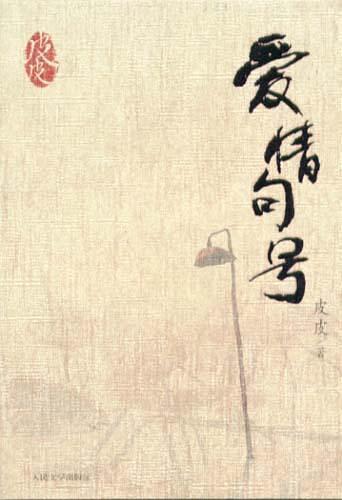 皮皮
爱情句号
皮皮 著
人民文学出版社